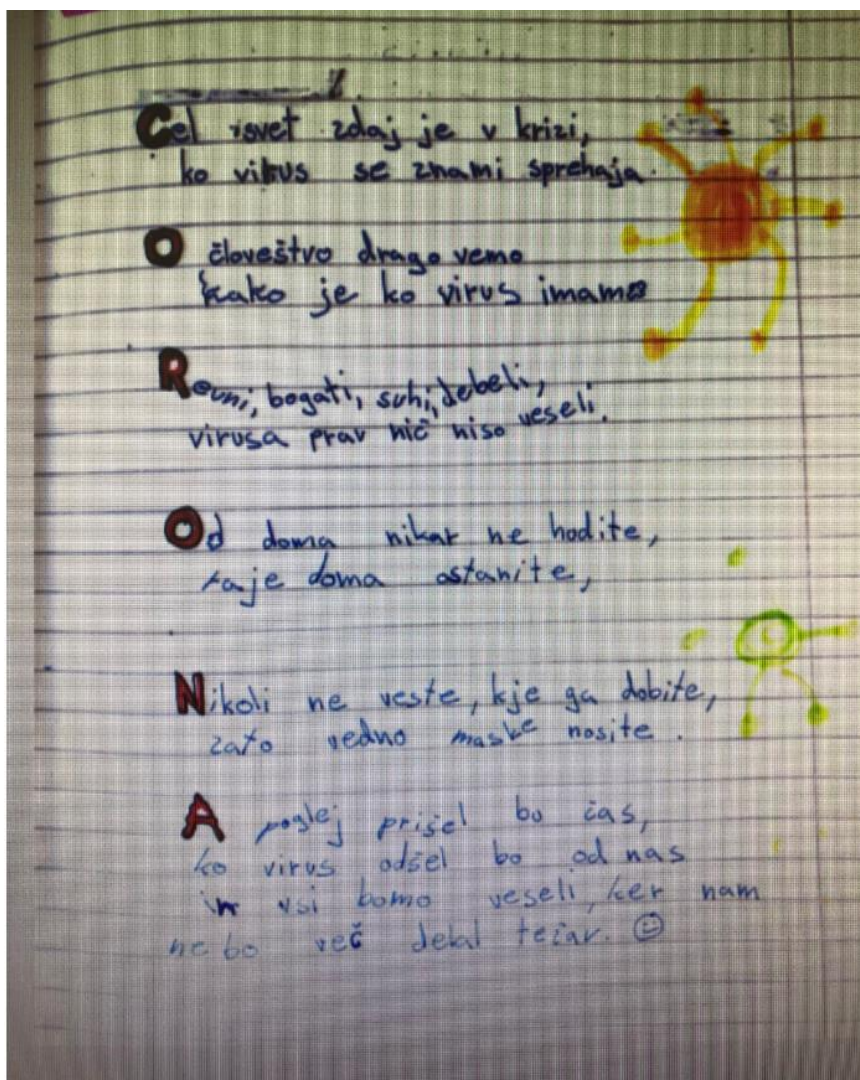 Cel svet zdaj je v krizi,
ko virus se znami sprehaja.
O človeštvo drago vemo
kako je ko virus imamo
Revni, bogati, suhi, debeli,
virusa prav nič niso veseli.
Od doma nikar ne hodite,
raje doma ostanite,
Nikoli ne veste, kje ga dobite,
zato vedno maske nosite.
A poglej prišel bo čas,
ko virus odšel bo od nas
in vsi bomo veseli, ker nam
ne bo več delal težav. ☺